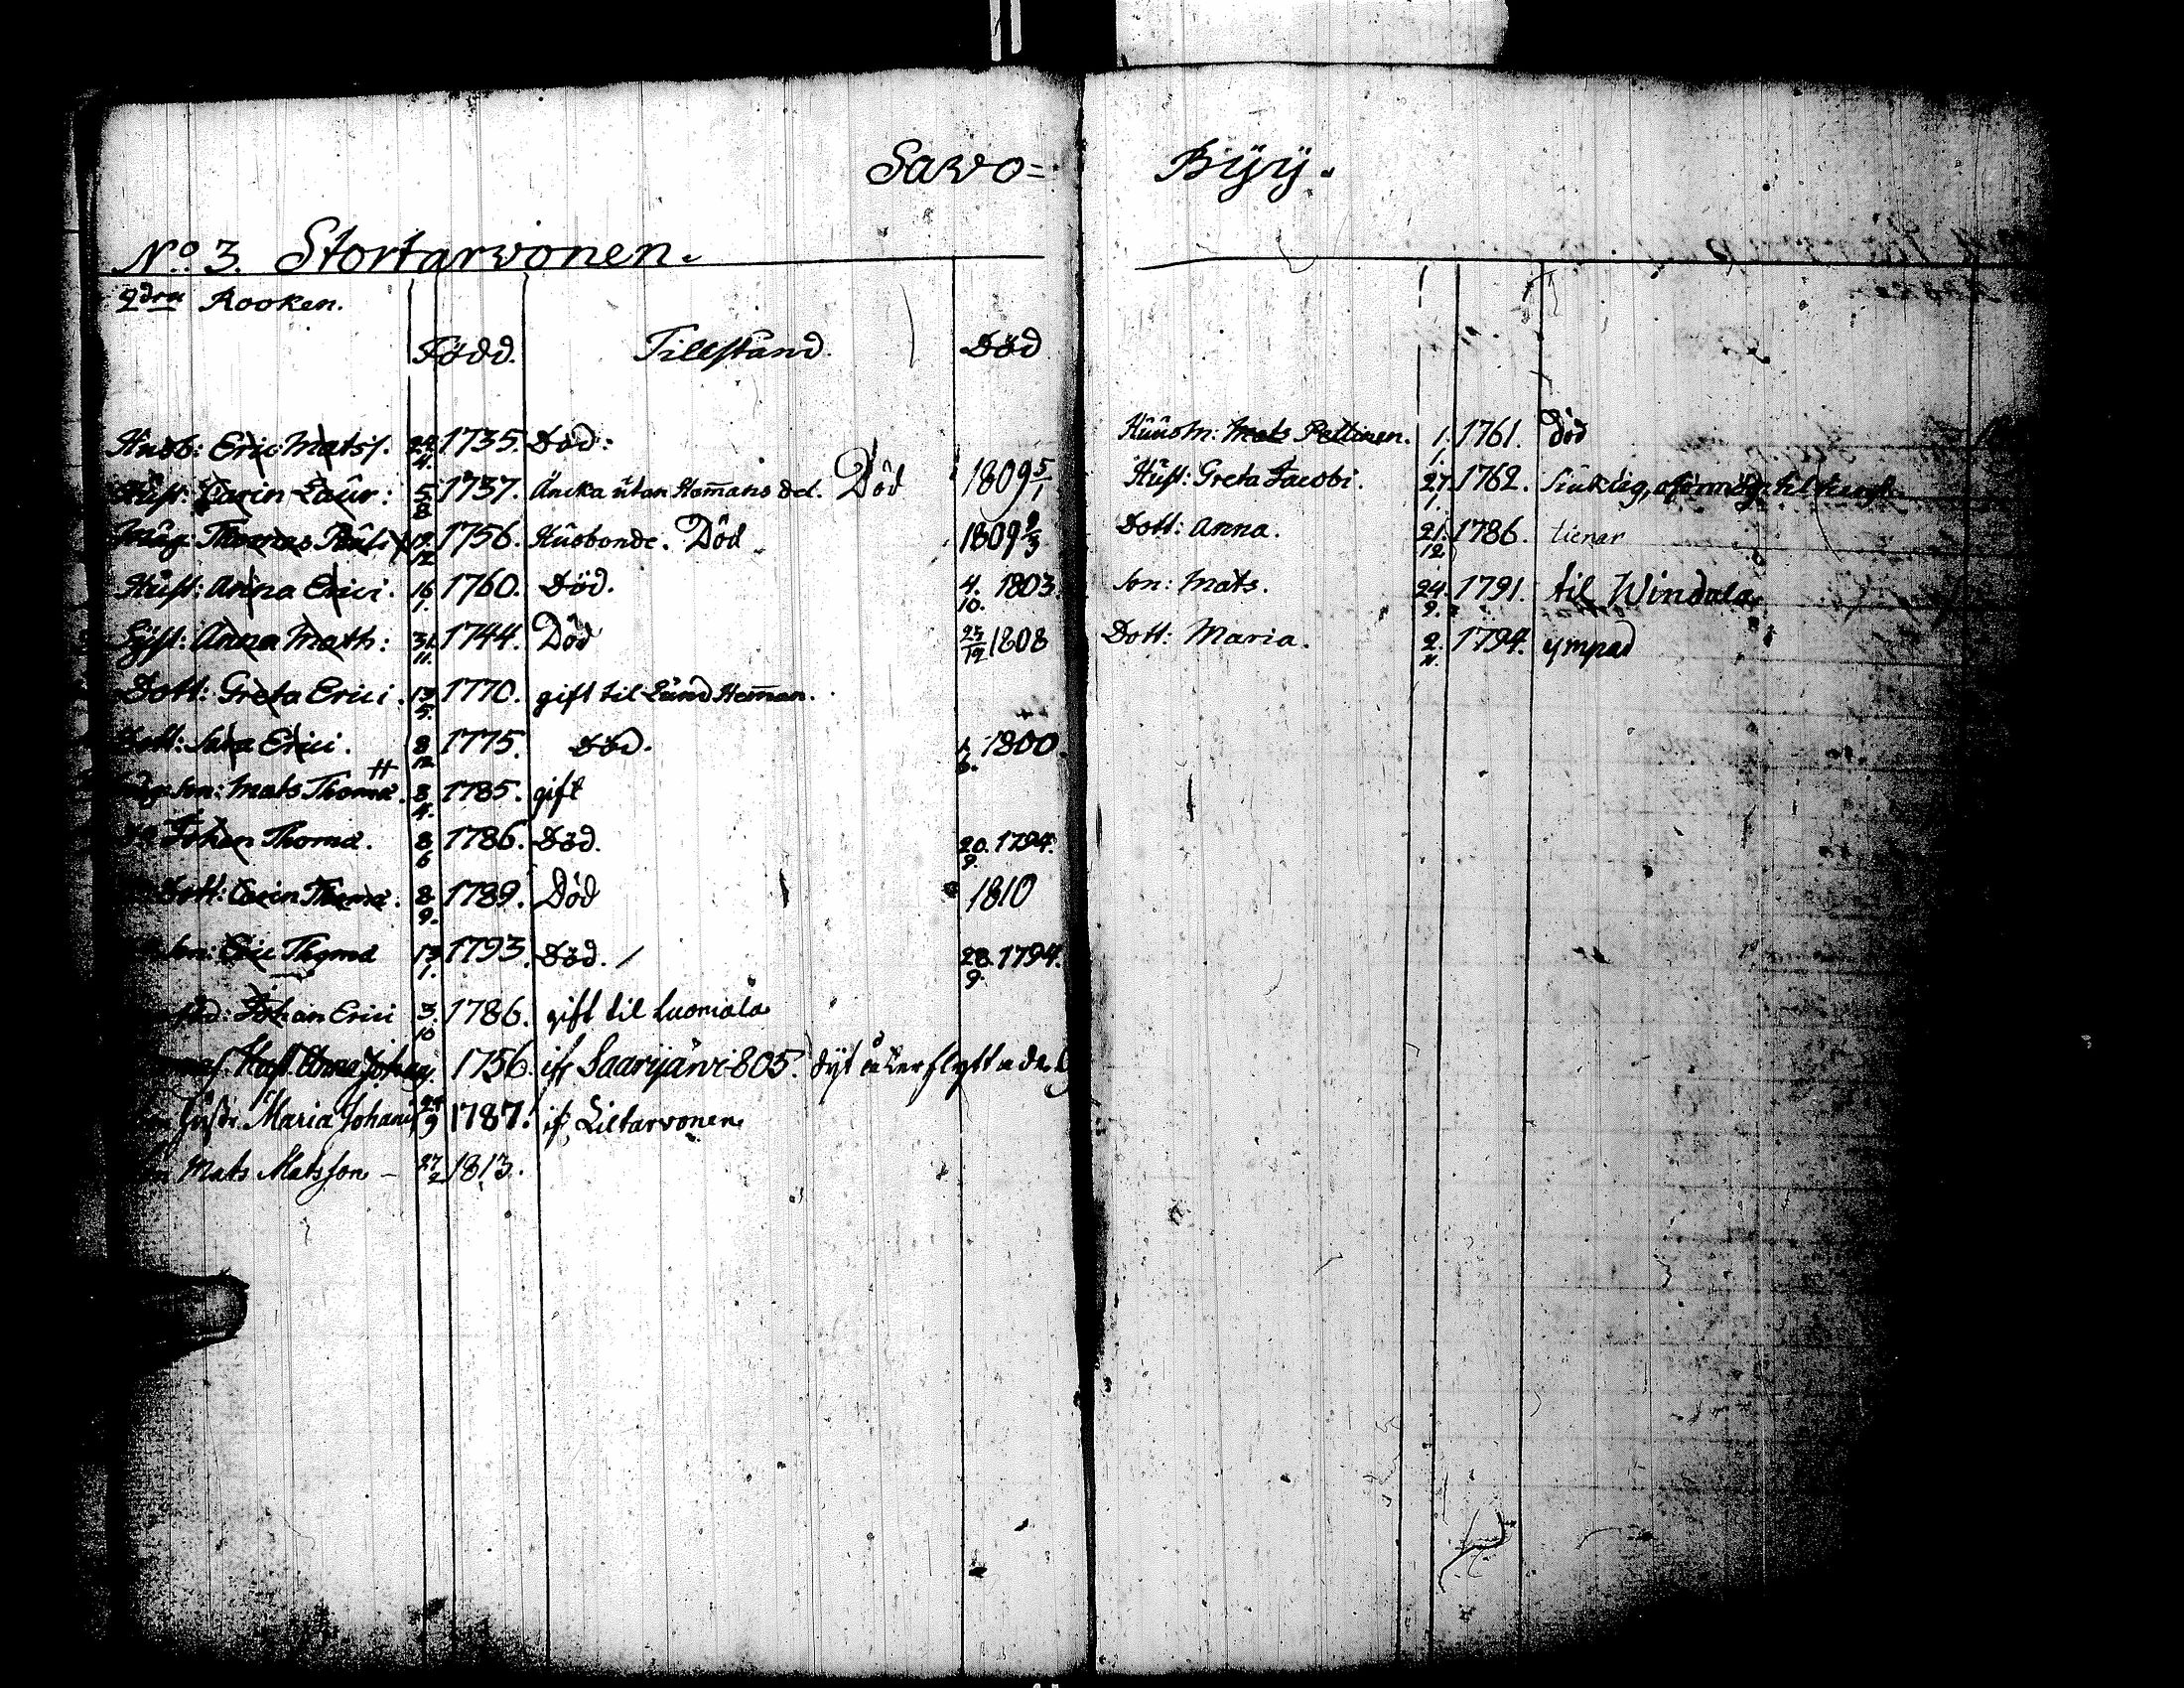 Sawo= Byy.
No. 3. Stortarvonen.
2dra Rooken.
Född. Tillstånd. Död
Husb: Eric Mats s. 24/4. 1735. Död.
Hust: Carin Laur: 5/8 1737. Äncka utan Hemans del. Död 1809 5/1
Måg: Thomas Påul: 12/12 1756. Husbonde. Död 1809 2/3
Hust: Anna Erici. 16/1. 1760. Död. 4/10. 1803
Anna Math: 31/11. 1744. Död 25/12 1808
Dott: Greta Erici. 13/5. 1770. gift til Lund Heman.
Dott: Sara Erici. 8/12 1775. Död. 1800.
Son: Mats Thomæ. 8/4. 1785. gift
Johan Thomæ. 8/6 1786. Död. 20/9. 1794.
Dott: Carin Thomæ. 8/9. 1789. Död 1810
Son: Eric Thomæ 13/1. 1793. Död. 28/9. 1794.
Johan Erici 3/10 1786. gift til Luomala
Anna Johan 1756. if Saarijärvi 805. dyt åter flyttade
Maria Johans 1787. if Liltarvonen
Mats Matsson - 27/2 1813.
Huusm: Mats Peltinen. 1/1. 1761. död
Hust: Greta Jacobi. 27/1. 1762. Siuklig,
Dott: Anna. 21/12 1786. tienar
Son: Mats. 24/9. 1791. til Windala
Dott: Maria. 1794. ympad